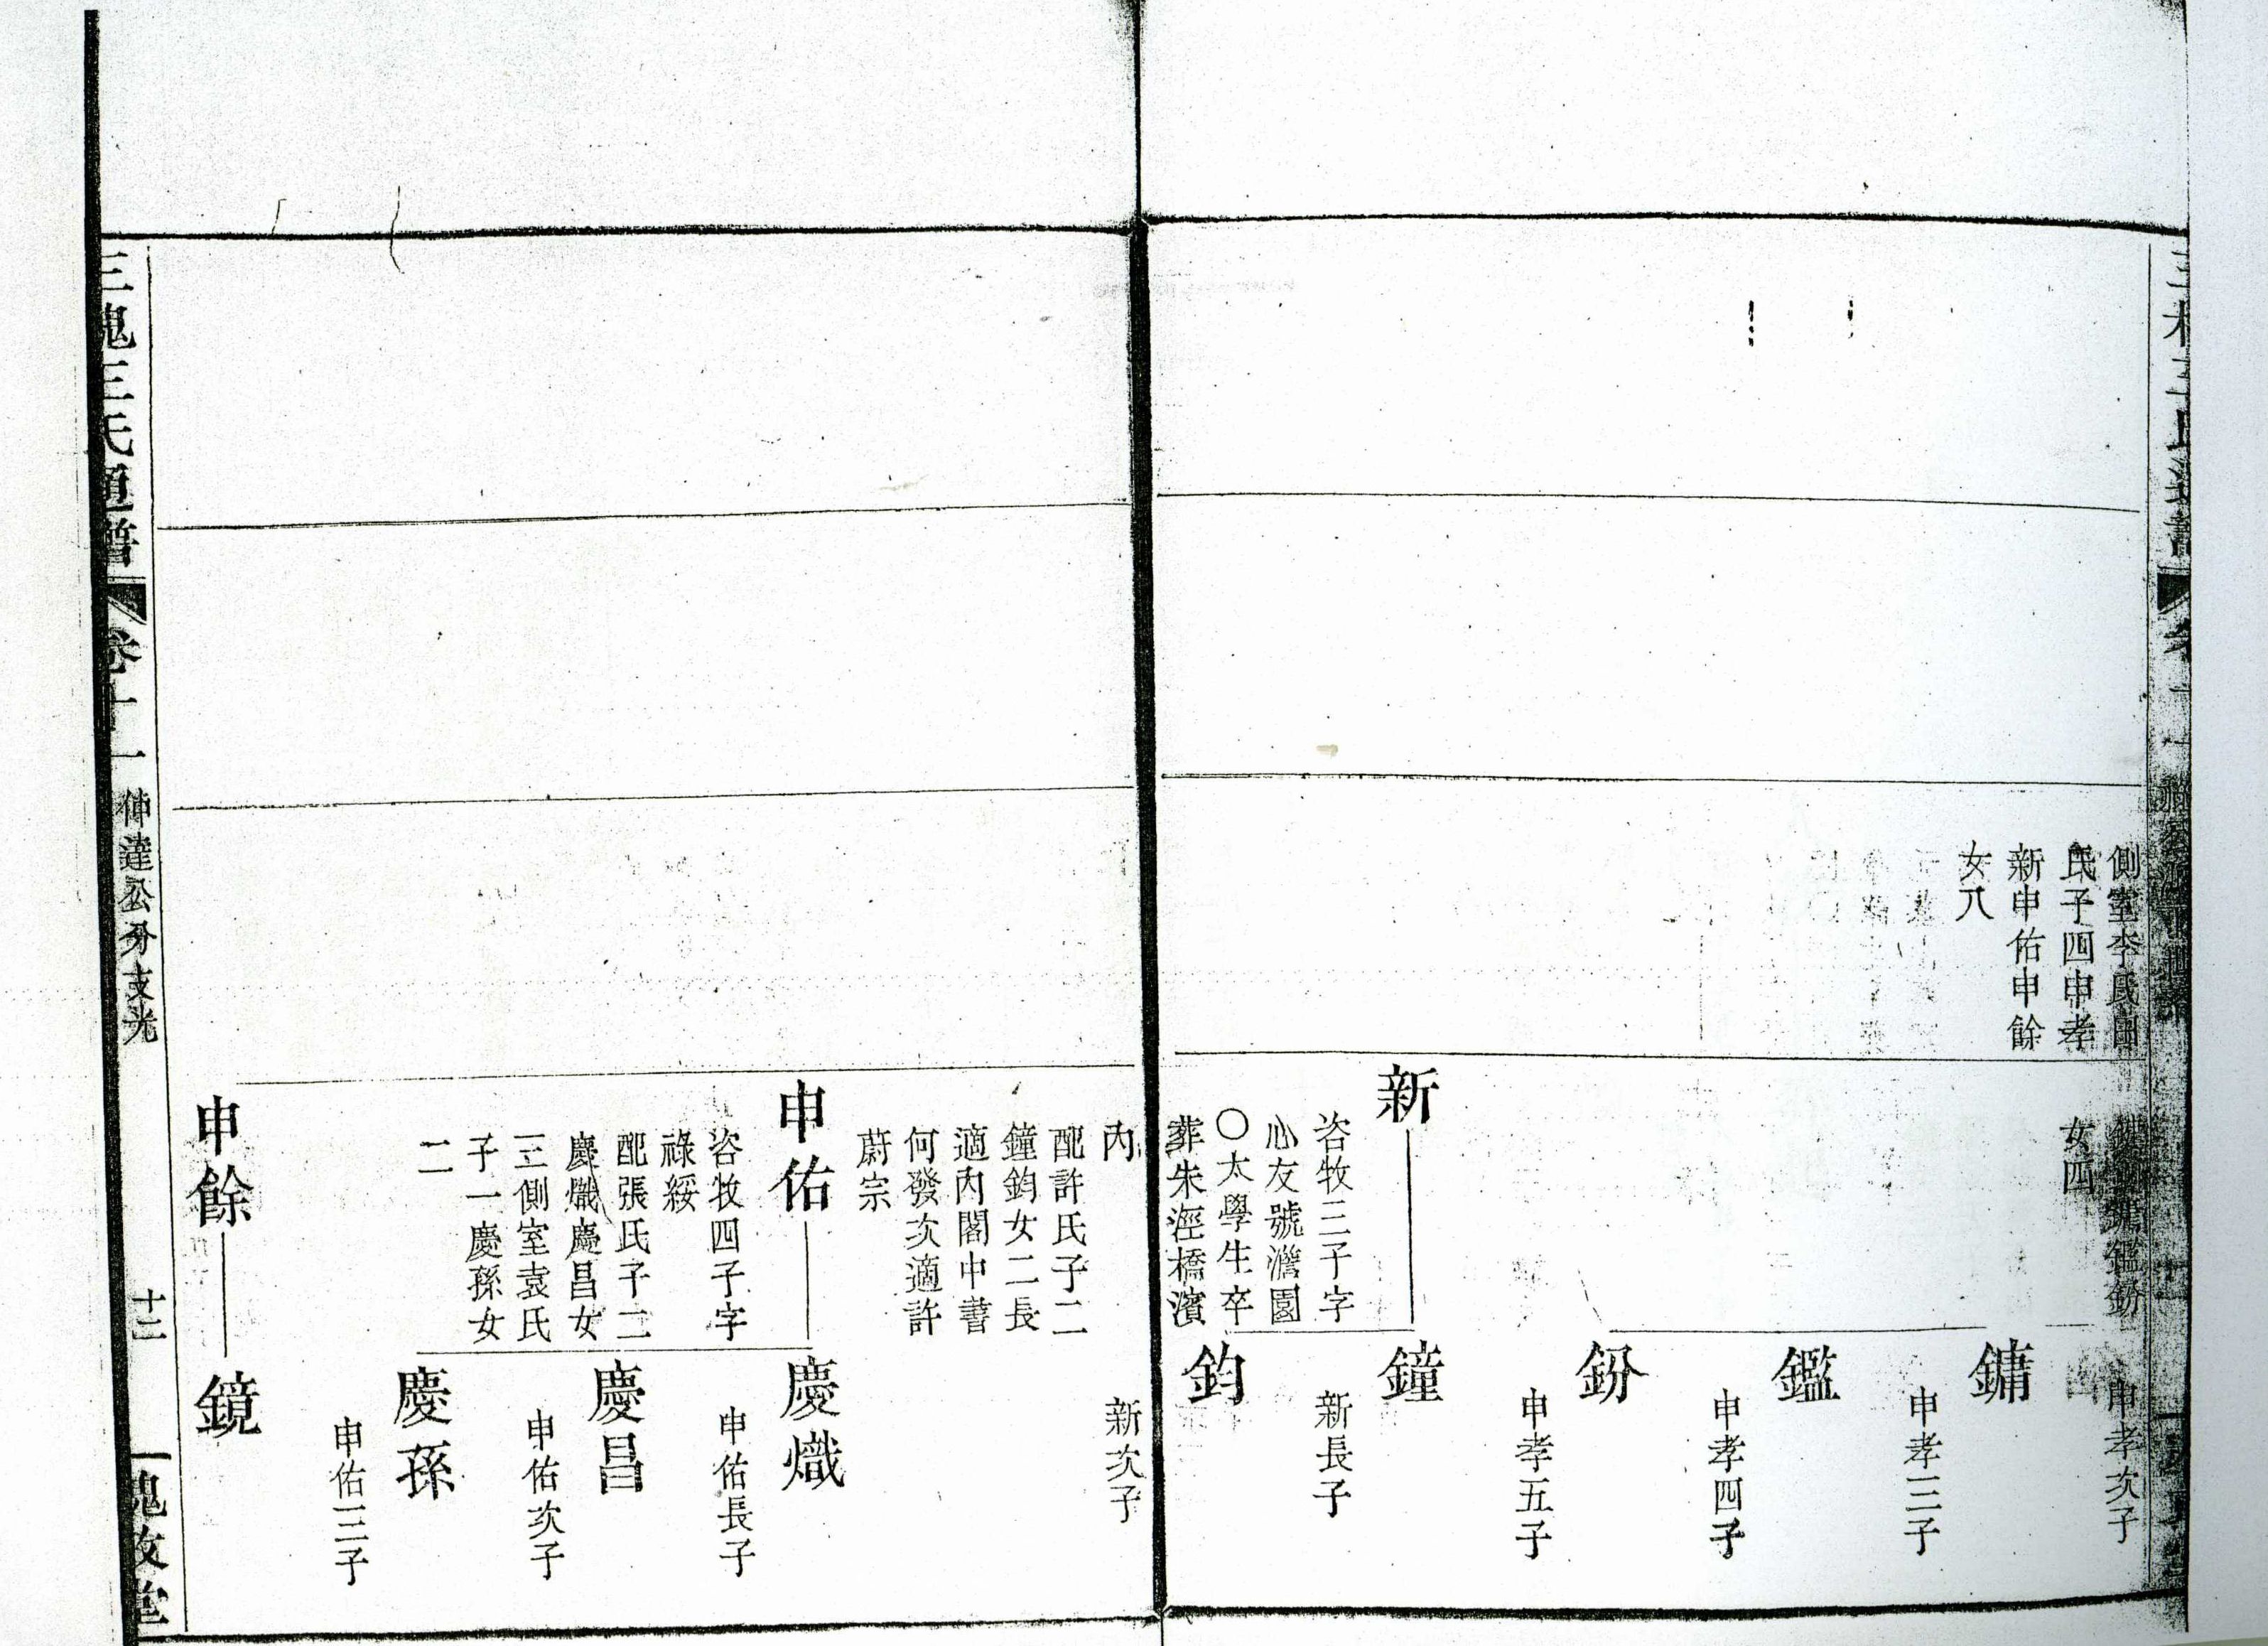 側室李氏田
氏子四申孝
新申佑申餘
女八
鏞鑑鈖
女四
申孝次子
鏞
申孝三子
鑑
申孝四子
鈖
申孝五子
新
咨牧三子字
心友號澹園
○太學生卒
葬朱涇橋濱
鐘
新長子
鈞
內
配許氏子二
鐘鈞女二長
適內閣中書
何發次適許
蔚宗
新次子
申佑
咨牧四子字
祿綏
配張氏子二
慶熾慶昌女
三側室袁氏
子一慶孫女
二
慶熾
申佑長子
慶昌
申佑次子
慶孫
申佑三子
申餘
鏡
三槐王氏通譜
卷十一
仲達公分支光
十二
槐政堂